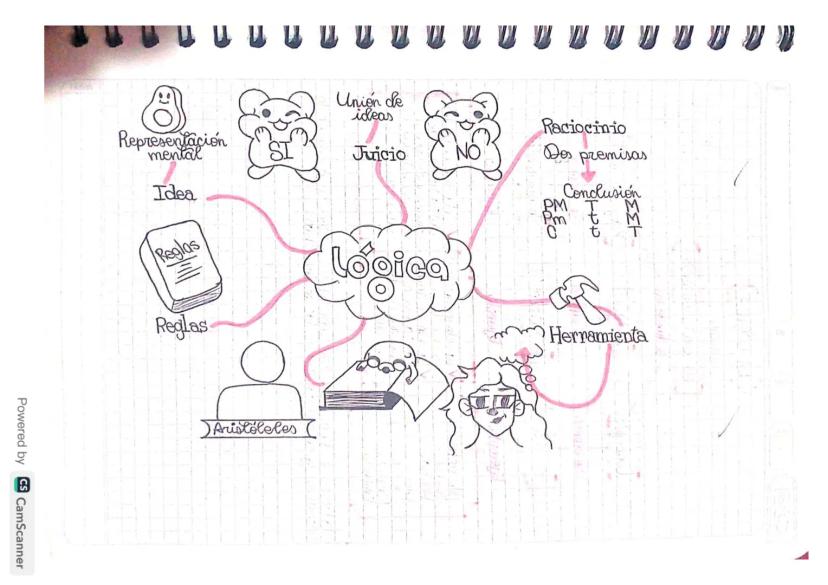 Unión de
ideas
Juicio
SI
NO
Representación
mental
Idea
Raciocinio
Dos premisas
Conclusión
PM T M
Pm t M
C t T
lógica
Reglas
Reglas
Herramienta
Aristóteles
Powered by CS CamScanner